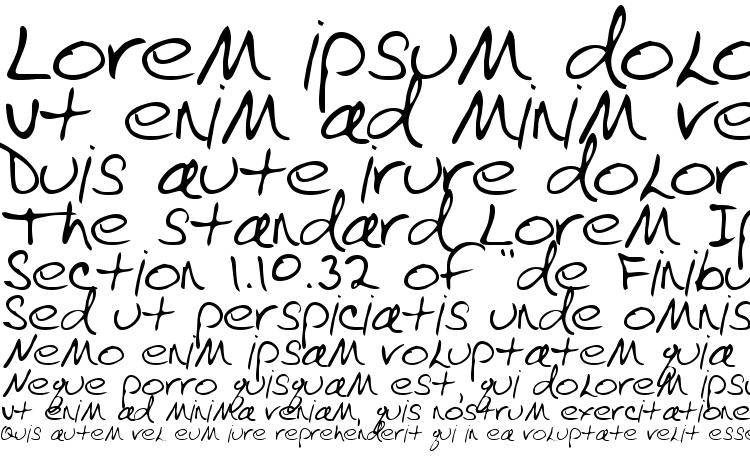 Lorem ipsum dolo
ut enim ad minim ve
Duis aute irure dolor
The standard Lorem Ip
Section 1.10.32 of "de Finibu
Sed ut perspiciatis unde omnis
Nemo enim ipsam voluptatem quia
Neque porro quisquam est, qui dolorem ipsu
ut enim ad minima veniam, quis nostrum exercitatione
Quis autem vel eum iure reprehenderit qui in ea voluptate velit esse